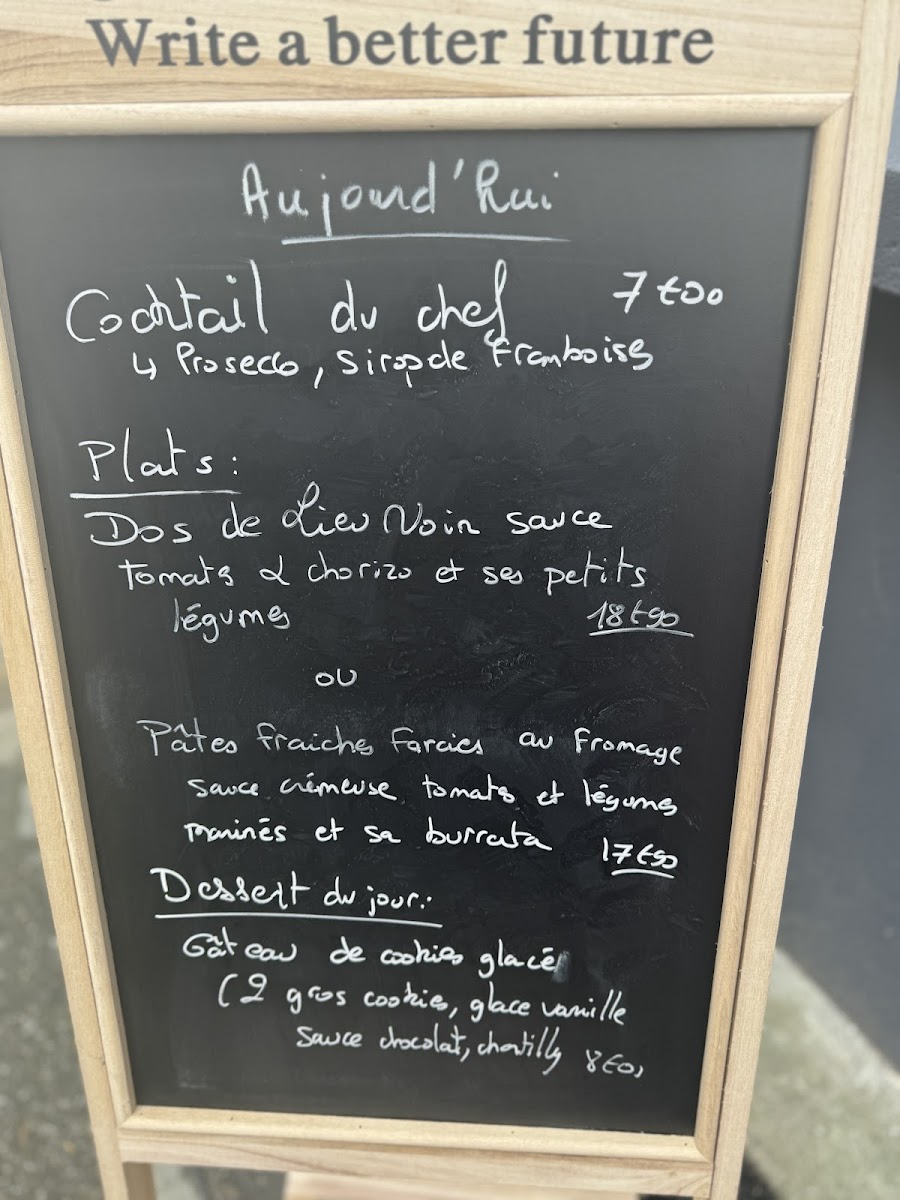 Write a better future
Aujourd'hui
Cocktail du chef 7€00
↳ Prosecco, Sirop de Framboises
Plats :
Dos de Lieu Noir sauce
tomates & chorizo et ses petits
légumes 18€90
ou
Pâtes fraiches farcies au fromage
sauce crémeuse tomates et légumes
marinés et sa burrata 17€90
Dessert du jour :
Gâteau de cookies glacé
(2 gros cookies, glace vanille
Sauce chocolat, chantilly 8€0